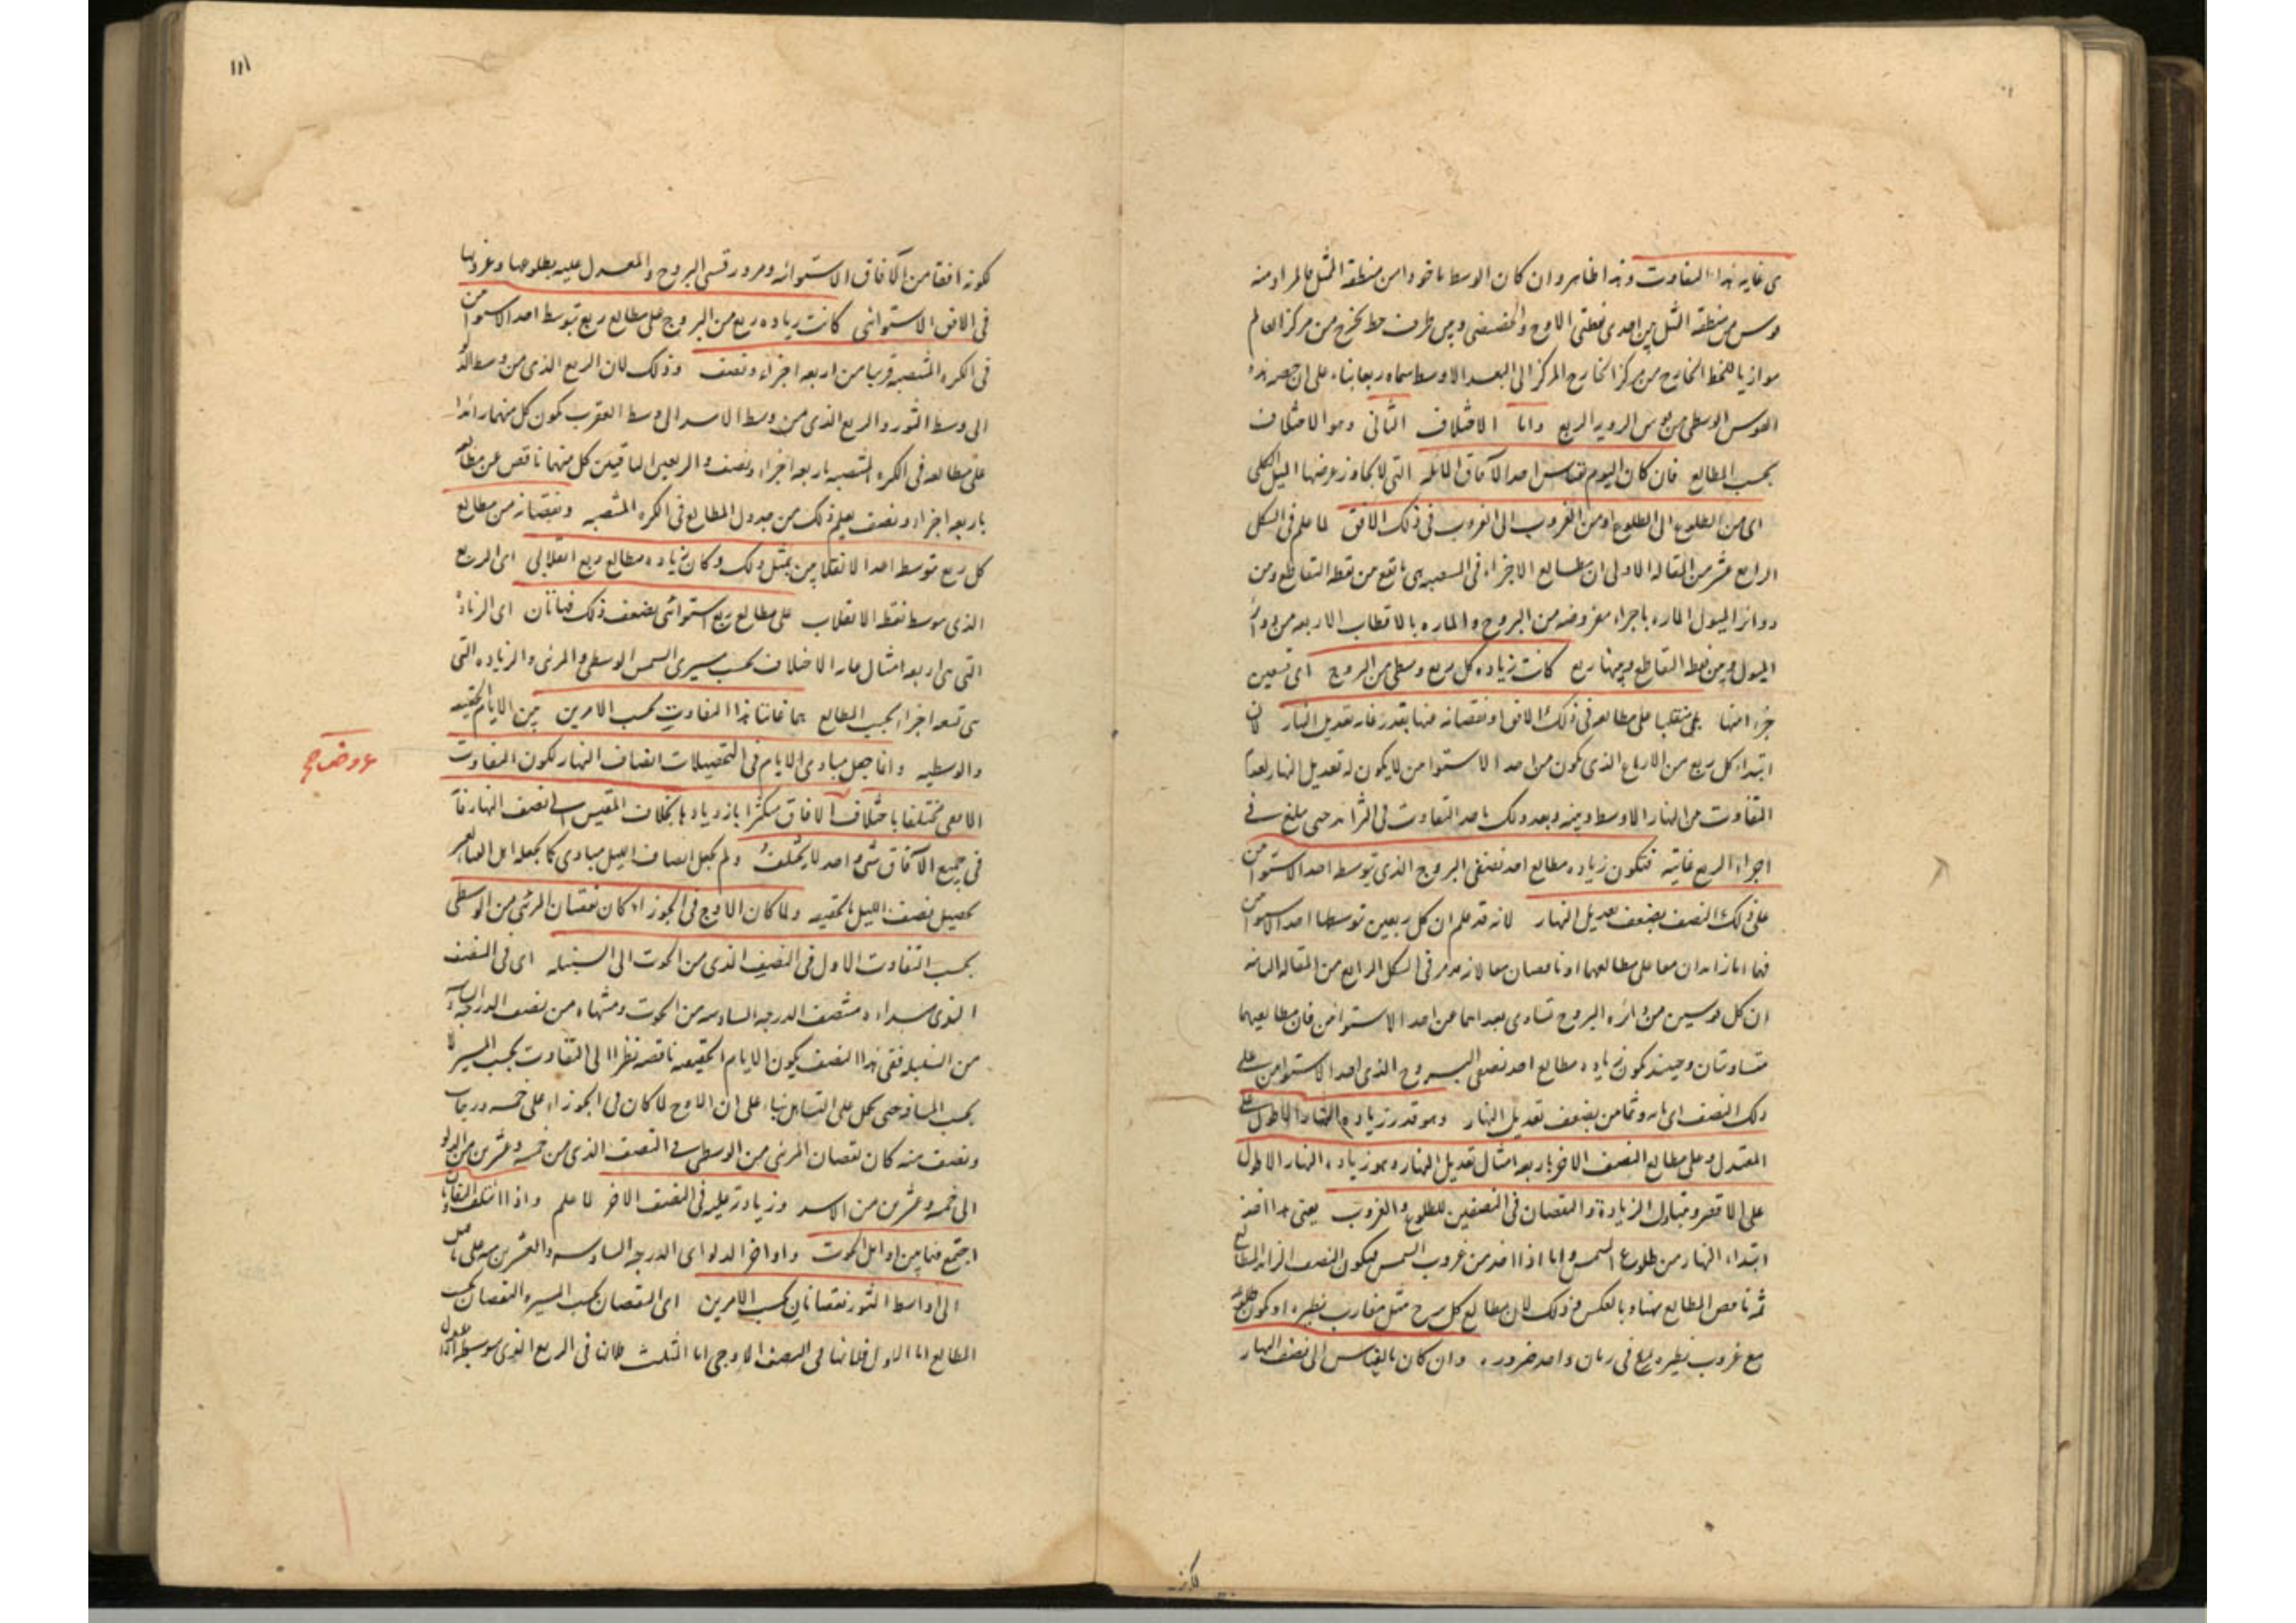 هى غاية هذا التفاوت وهذا ظاهر وان كان الوسط ماخوذا من منطقة الممثل فالمراد منه
قوس من منطقة الممثل بين احدى نقطتى الاوج والحضيض وبين طرف خط يخرج من مركز العالم
موازيا للخط الخارج من مركز الخارج المركز الى البعد الاوسط سماه ربعا بناء على ان حصة هذه
القوس الوسطى من قوس الرويه الربع واما الاختلاف الثانى وهو الاختلاف
بحسب المطالع فان كان اليوم بقياس احد الآفاق المائله التى لا يجاوز عرضها الميل الكلى
اى من الطلوع الى الطلوع او من الغروب الى الغروب فى ذلك الافق لما علم فى الشكل
الرابع عشر من المقاله الاولى ان مطالع الاجزاء فى المنتصبه هى ما يقع من نقطه التقاطع ومن
دوائر الميول الماره باجزاء مفروضه من البروج والماره بالاقطاب الاربعه من دوائر
الميول وبين نقطه التقاطع وبينها ربع كانت زياده كل ربع وسطى من البروج اى تسعين
جزءا منها على مطالعه فى ذلك الافق او نقصانه منها بقدر غايه تعديل النهار لان
ابتداء كل ربع من الارباع الذى يكون من احد الاستوائين لا يكون له تعديل النهار لعدم
التفاوت بين النهار الاوسط وبينه وبعد ذلك ياخذ التفاوت فى التزايد حتى يبلغ فى
اجزاء الربع غايته فتكون زياده مطالع احد نصفى البروج الذى يتوسطه احد الاستوائين
على ذلك النصف بضعف تعديل النهار لانه قد علم ان كل ربعين توسطها احد الاستوائين
فهما اما زايدان معا على مطالعهما او ناقصان معا لانه مر فى الشكل الرابع من المقاله الثانيه
ان كل قوسين من دائره البروج تساوى بعداهما عن احد الاستوائين فان مطالعيهما
متساويتان وحينئذ يكون زياده مطالع احد نصفى البروج الذى احد الاستوائين على
ذلك النصف اى بضعف تعديل النهار وهو قدر زياده النهار الاطول على
المعتدل وعلى مطالع النصف الاخر باربعه امثال تعديل النهار وهو زياده النهار الاطول
على الاقصر ويتبادل الزيادة والنقصان فى النصفين للطلوع والغروب يعنى هذا اذا اخذ
ابتداء النهار من طلوع الشمس واما اذا اخذ من غروب الشمس فيكون النصف الزائد المطالع
ثمه ناقص المطالع ههنا وبالعكس وذلك لان مطالع كل برج مثل مغارب نظيره او يكون طلوعه
مع غروب نظيره معا فى زمان واحد ضروره وان كان بالقياس الى نصف النهار
لكونه
١١١
لكونه افقا من الآفاق الاستوائيه ومرور قسى البروج والمعدل عليه بطلوعها وغروبها
فى الافق الاستوائى كانت زياده ربع من البروج على مطالع ربع يتوسط احد الاستوائين
فى الكره المنتصبه قريبا من اربعه اجزاء ونصف وذلك لان الربع الذى من وسط الدلو
الى وسط الثور والربع الذى من وسط الاسد الى وسط العقرب يكون كل منهما زائدا
على مطالعه فى الكره المنتصبه باربعه اجزاء ونصف والربعين الباقيين كل منهما ناقص عن مطالعه
باربعه اجزاء ونصف يعلم ذلك من جدول المطالع فى الكره المنتصبه ونقصانه من مطالع
كل ربع يتوسط احد الانقلابين بمثل ذلك وكان زياده مطالع ربع انقلابى اى الربع
الذى يتوسط نقطه الانقلاب على مطالع ربع استوائى بضعف ذلك فهاتان اى الزياده
التى هى اربعه امثال غايه الاختلاف بحسب مسيرى الشمس الوسطى والمرئى والزياده التى
هى تسعه اجزاء بحسب المطالع هما غايتا هذا التفاوت بحسب الامرين بين الايام الحقيقيه
والوسطيه وانما جعل مبادى الايام فى التحصيلات انصاف النهار لكون التفاوت
الافقى مختلفا باختلاف الافاق متكثرا بازديادها بخلاف المقيس الى نصف النهار فانه
فى جميع الآفاق شئ واحد لا يختلف ولم يجعل انصاف الليل مبادى كما يجعله اهل
تحصيل نصف الليل بالحقيقه ولما كان الاوج فى الجوزاء كان نقصان المرئى من الوسطى
بحسب التفاوت الاول فى النصف الذى من الحوت الى السنبله اى فى النصف
الذى مبداءه منتصف الدرجه السادسه من الحوت ومنتهاه من نصف الدرجه السادسه
من السنبله ففى هذا النصف يكون الايام الحقيقيه ناقصه نظرا الى التفاوت بحسب المسير لا
بحسب المسافه حتى يحمل على التساهل بناء على ان الاوج لما كان فى الجوزاء على خمسه درجات
ونصف منه كان نقصان المرئى من الوسطى فى النصف الذى من خمسه وعشرين من الدلو
الى خمسه وعشرين من الاسد وزيادته عليه فى النصف الاخر لما علم واذا اختلف التفاوتان
اجتمع فيما بين اوائل الحوت واواخر الدلو اى الدرجه السادسه والعشرين منه على ما قيل
الى اواسط الثور نقصانان بحسب الامرين اى النقصان بحسب المسير والنقصان بحسب
المطالع اما الاول فلانها فى النصف الاوجى اما الثالث فلانه فى الربع الذى يتوسطه الاعتدال